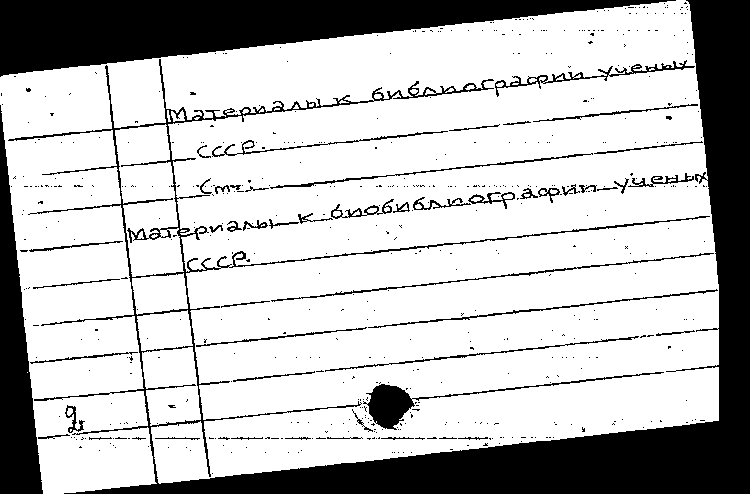 Материалы к библиографии ученых
СССР.
Смт:
Материалы к биобиблиографии ученых
СССР.